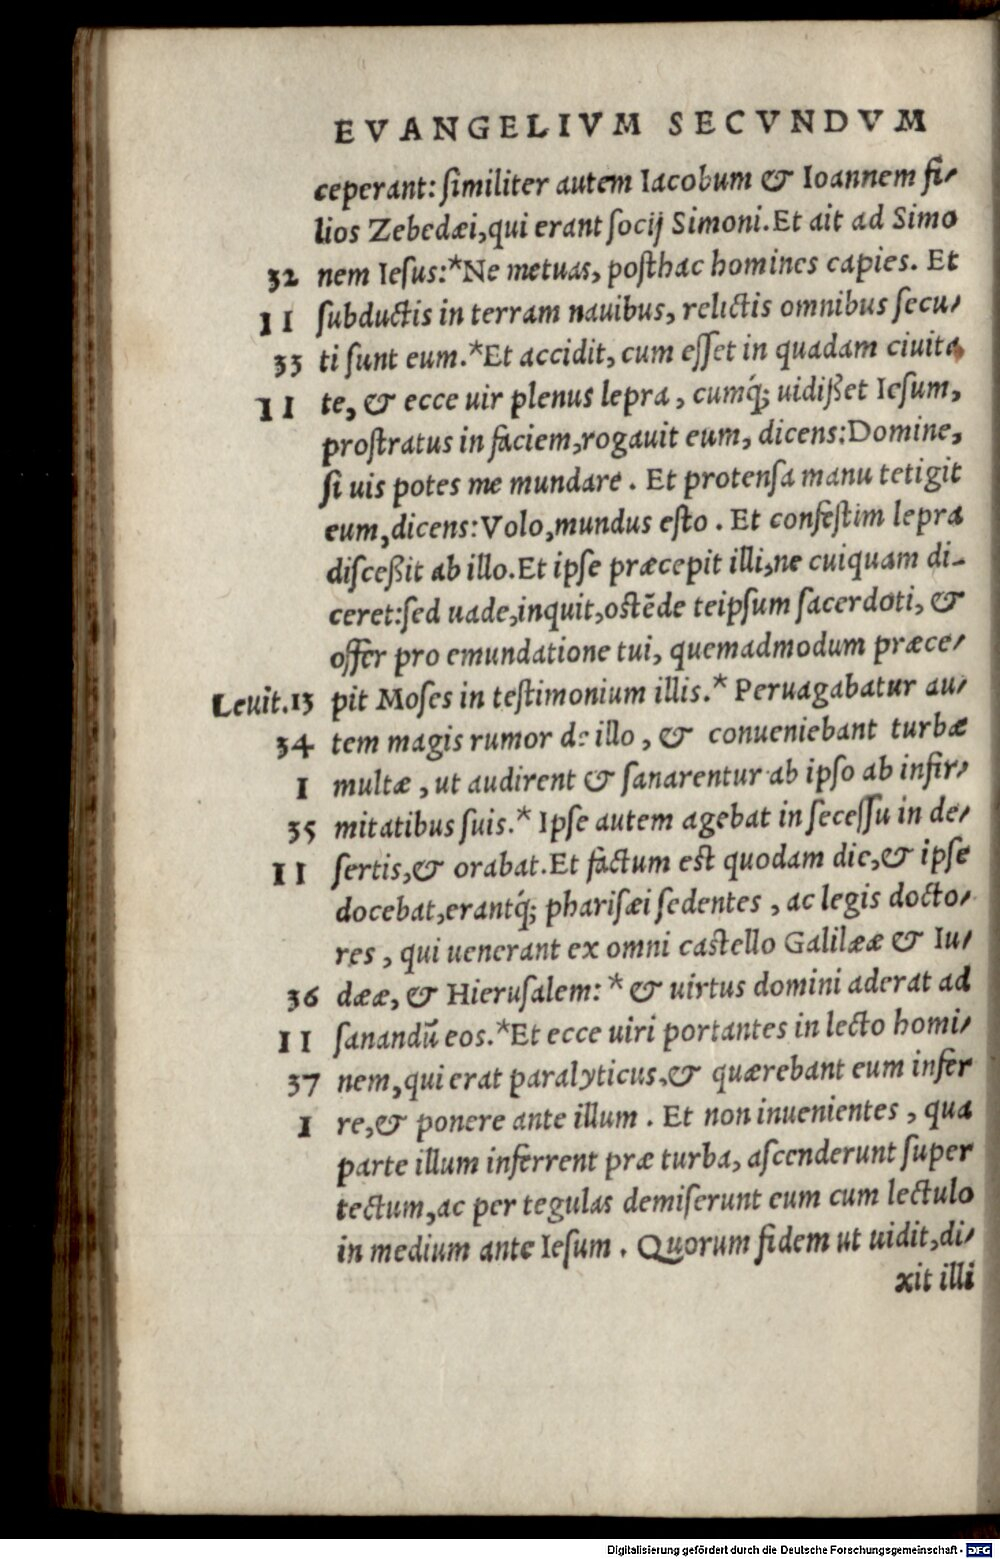 EVANGELIVM SECVNDVM
ceperant: ſimiliter autem Iacobum & Ioannem fi⸗
lios Zebedæi, qui erant ſocij Simoni. Et ait ad Simo
32 nem Ieſus:*Ne metuas, poſthac homines capies. Et
II ſubductis in terram nauibus, relictis omnibus ſecu⸗
33 ti ſunt eum.*Et accidit, cum eſſet in quadam ciuita
II te, & ecce uir plenus lepra, cumq́; uidißet Ieſum,
proſtratus in faciem, rogauit eum, dicens: Domine,
ſi uis potes me mundare. Et protenſa manu tetigit
eum, dicens: Volo, mundus eſto. Et confeſtim lepra
diſceßit ab illo. Et ipſe præcepit illi, ne cuiquam di-
ceret: ſed uade, inquit, oſtẽde teipſum ſacerdoti, &
offer pro emundatione tui, quemadmodum præce⸗
Leuit.13 pit Moſes in teſtimonium illis.* Peruagabatur au⸗
34 tem magis rumor de illo, & conueniebant turbæ
I multæ, ut audirent & ſanarentur ab ipſo ab infir⸗
35 mitatibus ſuis.* Ipſe autem agebat in ſeceſſu in de⸗
II ſertis, & orabat. Et factum est quodam die, & ipſe
docebat, erantq́; phariſæi ſedentes, ac legis docto⸗
res, qui uenerant ex omni castello Galilææ & Iu⸗
36 dææ, & Hieruſalem: * & uirtus domini aderat ad
II ſanandũ eos.*Et ecce uiri portantes in lecto homi⸗
37 nem, qui erat paralyticus, & quærebant eum infer
I re, & ponere ante illum. Et non inuenientes, qua
parte illum inferrent præ turba, aſcenderunt ſuper
tectum, ac per tegulas demiſerunt eum cum lectulo
in medium ante Ieſum. Quorum fidem ut uidit, di⸗
xit illi
Digitalisierung gefördert durch die Deutsche Forschungsgemeinschaft - DFG